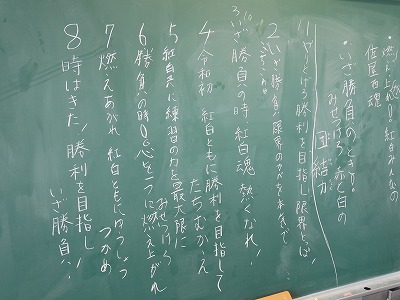 燃え上がれ!!紅白みんなの
佳屋西魂
・いざ勝負のとき!
みせつけろ 赤と白の
団結力
1 やりとげろ勝利を目指し限界とっぱ!
2 いざ勝負!限界のカベを本気で
3 いざ勝負の時 紅白魂 熱くなれ!
4 令和初 紅白ともに勝利を目指して
たちむかえ
5 紅白共に練習の力を最大限に
みせつけろ
6 勝負の時!心を一つに燃え上がれ
7 燃えあがれ 紅白ともにゆうしょう
つかめ
8 時はきた!勝利を目指し
いざ勝負!!